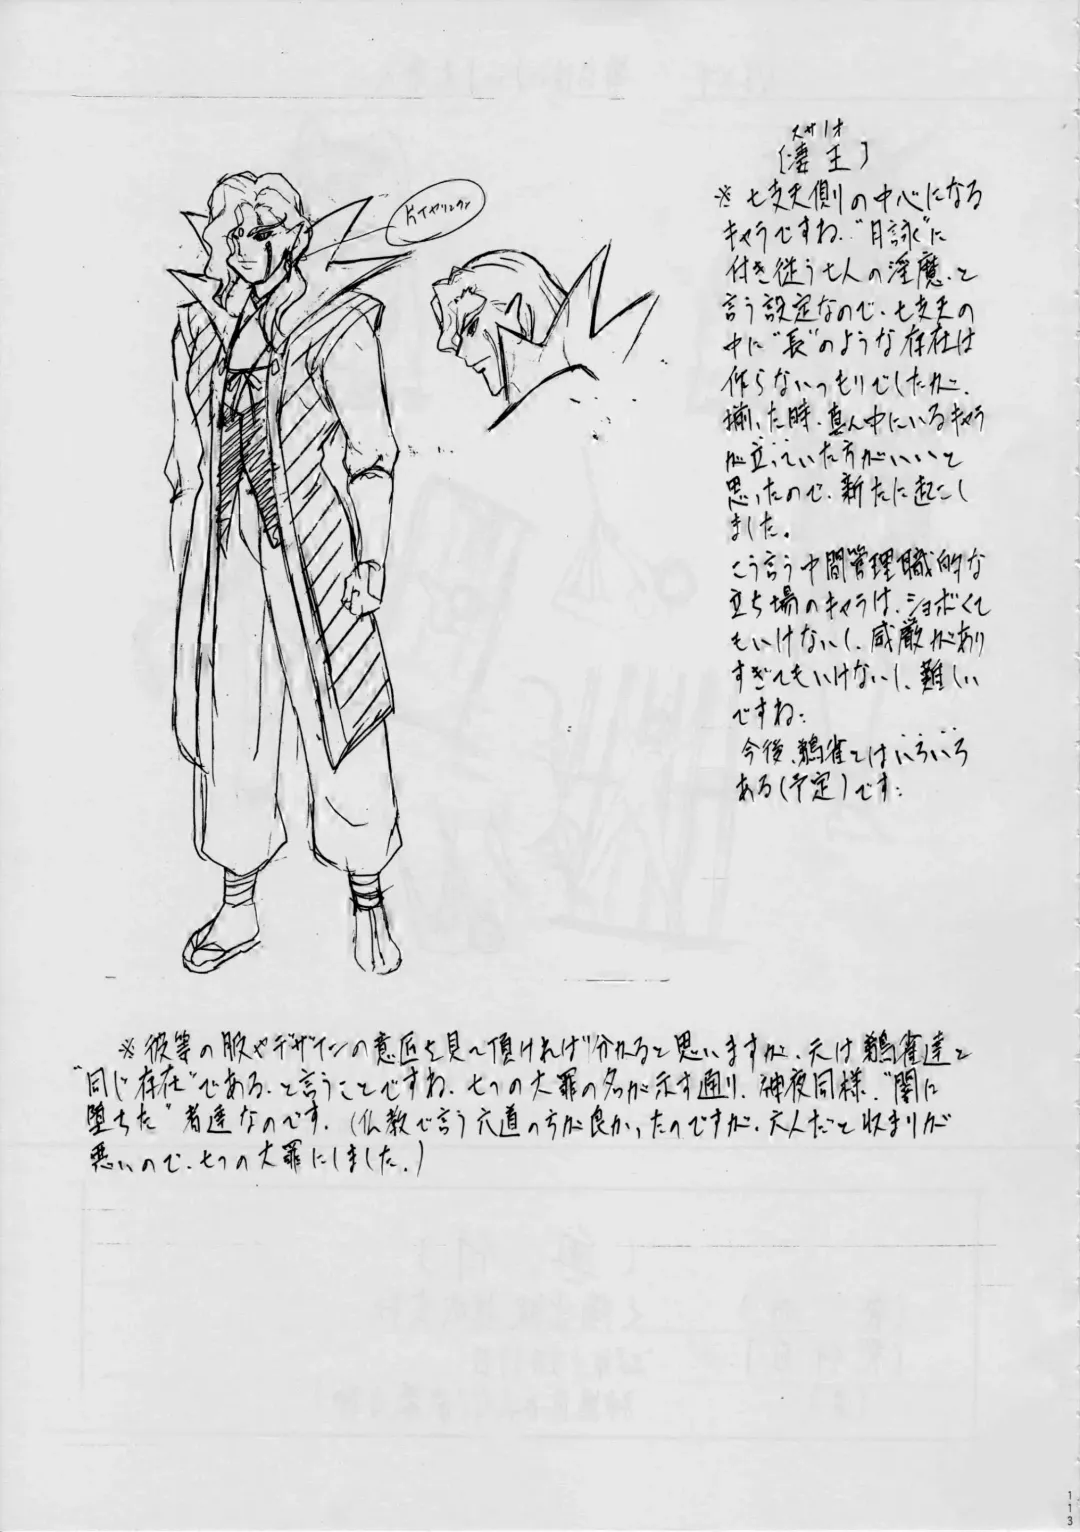 スサノオ
〔凄王〕
※ 七支天側の中心になる
キャラですね。"月詠"に
付き従う七人の淫魔、と
言う設定なので、七支天の
中に"長"のような存在は
作らないつもりでしたが、
揃った時、真ん中にいるキャラ
が立っていた方がいいと
思ったので、新たに起こし
ました。
こう言う中間管理職的な
立ち場のキャラは、ショボくて
もいけないし、威厳があり
すぎてもいけないし、難しい
ですね…
今後、鵺雀とはいろいろ
ある(予定)です…
片イヤリング
※ 彼等の服やデザインの意匠を見て頂ければ分かると思いますが、元は鵺雀達と
"同じ存在"である、と言うことですね。七つの大罪の名が示す通り、神夜同様、"闇に
堕ちた"者達なのです。(仏教で言う六道の方が良かったのですが、六人だと収まりが
悪いので、七つの大罪にしました。)
113